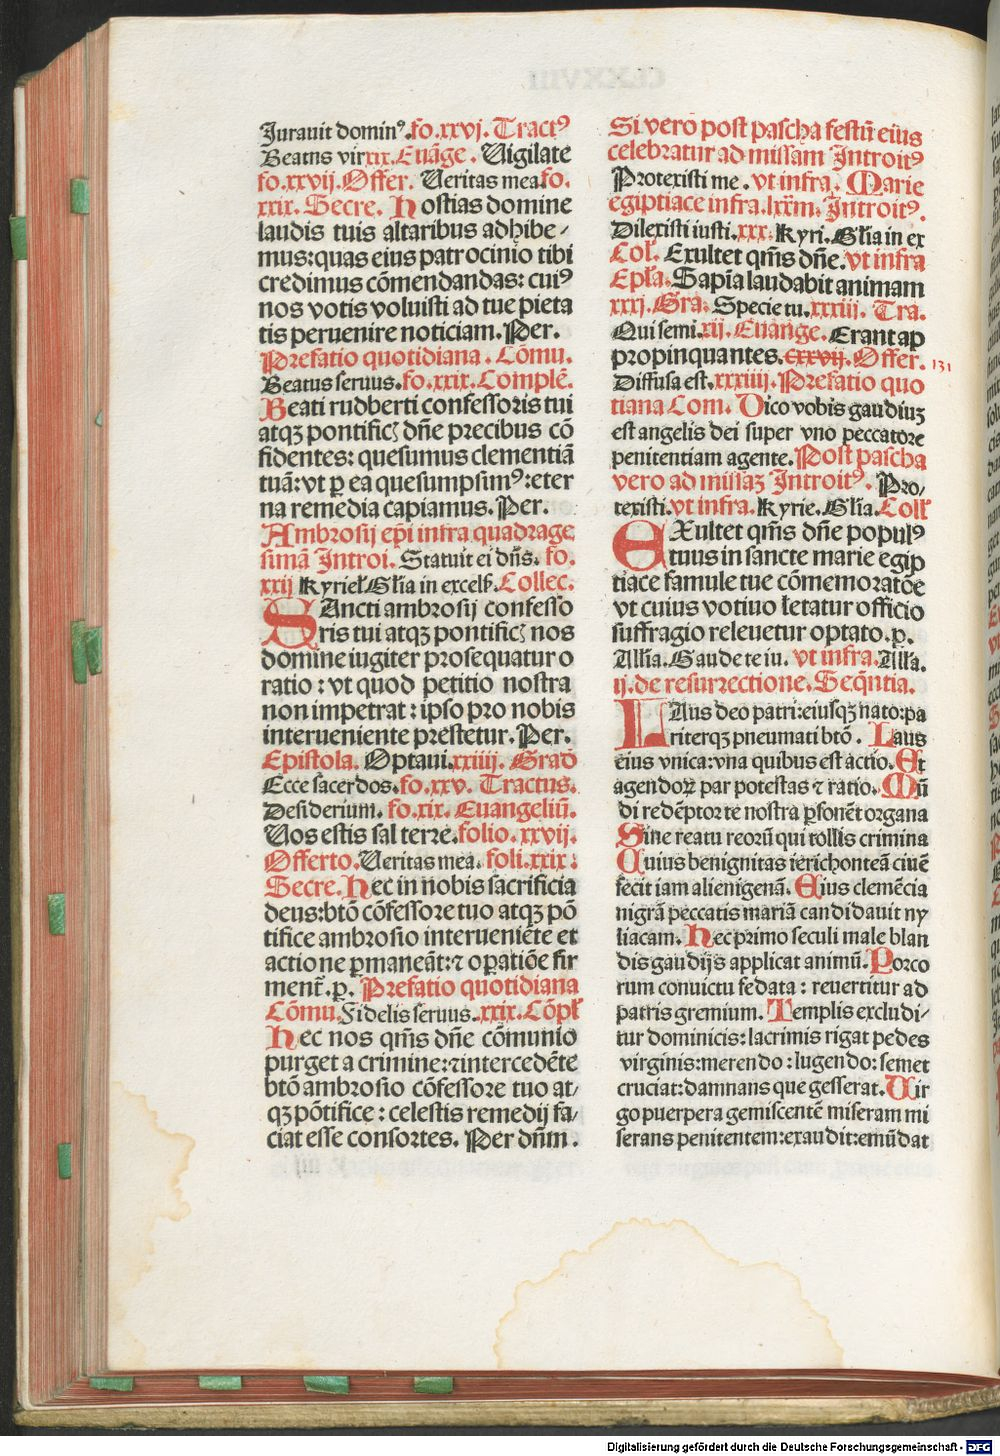 Jurauit dominꝰ.fo.xxvj.Tractꝰ
Beatus vir xix.Euãge. Uigilate
fo.xxvij.Offer. Ueritas mea.fo.
xxix. Secre. Hostias domine
laudis tuis altaribus adhibe⸗
mus:quas eius patrocinio tibi
credimus cõmendandas: cuiꝰ
nos votis voluisti ad tue pieta
tis peruenire noticiam. Per.
Prefatio quotidiana. Cõmu.
Beatus seruus.fo.xxix.Complẽ.
Beati rudberti confessoris tui
atqꝫ pontificꝭ dñe precibus cõ
fidentes: quesumus clementiã
tuã:vt ꝑ ea que sumpsimꝰ:eter
na remedia capiamus. Per.
Ambrosij ep̃i infra quadrage
simã Introi. Statuit ei dñs. fo.
xxij Kyriel̃ Gl̃ia in excels̃.Collec.
SAncti ambrosij confesso
ris tui atqꝫ pontificꝭ nos
domine iugiter prosequatur o
ratio : vt quod petitio nostra
non impetrat: ipso pro nobis
interueniente prestetur. Per.
Epistola. Optaui.xxiiij. Grad̃
Ecce sacerdos.fo.xxv. Tractus.
Desiderium. fo.xix. Euangeliũ.
Uos estis sal terre.folio.xxvij.
Offerto. Ueritas mea. foli.xxix:
Secre.Hec in nobis sacrificia
deus:btõ cõfessore tuo atqꝫ põ
tifice ambrosio interueniẽte et
actione ꝑmaneãt:⁊ oꝑatiõe fir
ment̃.ꝑ. Prefatio quotidiana
Cõmu.Fidelis seruus.xxix.Cõpl̃
Hec nos qm̃s dñe cõmunio
purget a crimine:⁊ intercedẽte
btõ ambrosio cõfessore tuo at⸗
qꝫ põtifice : celestis remedij fa⸗
ciat esse consortes. Per dñm.
Si vero post pascha festũ eius
celebratur ad missam Introitꝰ
Protexisti me. vt infra. Marie
egiptiace infra.lxx̃m. Introitꝰ.
Dilexisti iusti.xxx. Kyri. Gl̃ia in ex
Col̃. Exultet qm̃s dñe. vt infra
Epl̃a. Sapiẽ laudabit animam
xxxj.Gra. Specie tu.xxxiij. Tra.
Qui semi.xij. Euange. Erant ap
propinquantes.cxxvij.Offer. 131
Diffusa est.xxxiiij.Prefatio quo
tiana Com. Dico vobis gaudiuꝫ
est angelis dei super vno peccatore
penitentiam agente. Post pascha
vero ad missaꝫ Introitꝰ. Pro⸗
texisti.vt infra. Kyrie.Gl̃ia.Coll̃
EXultet qm̃s dñe populꝰ
tuus in sancte marie egip
tiace famule tue cõmemoratõe
vt cuius votiuo letatur officio
suffragio releuetur optato.ꝑ.
All̃ia.Gaudete iu. vt infra.All̃a.
ij.de resurrectione.Seq̃ntia.
LAus deo patri:eiusqꝫ nato:pa
riterqꝫ pneumati btõ. Laus
eius vnica:vna quibus est actio. Et
agendoꝝ par potestas ⁊ ratio. Mũ
di redẽptor te nostra ꝑsonẽt organa
Sine reatu reorũ qui tollis crimina
Cuius benignitas ierichonteã ciuẽ
fecit iam alienigenã. Eius clemẽcia
nigrã peccatis mariã candidauit ny
liacam. Hec primo seculi male blan
dis gaudijs applicat animũ. Porco
rum conuictu fedata: reuertitur ad
patris gremium. Templis excludi⸗
tur dominicis: lacrimis rigat pedes
virginis:merendo:lugendo:semet
cruciat:damnans que gesserat. Uir
go puerpera gemiscentẽ miseram mi
serans penitentem:exaudit:emũdat
Digitalisierung gefördert durch die Deutsche Forschungsgemeinschaft - DFG